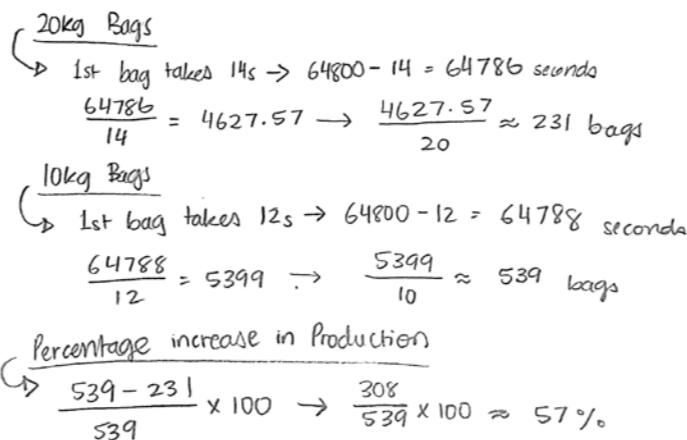 20kg Bags
1st bag takes 14s → 64800 - 14 = 64786 seconds
64786/14 = 4627.57 → 4627.57/20 ≈ 231 bags
10kg Bags
1st bag takes 12s → 64800 - 12 = 64788 seconds
64788/12 = 5399 → 5399/10 ≈ 539 bags
Percentage increase in Production
539 - 231/539 × 100 → 308/539 × 100 ≈ 57%